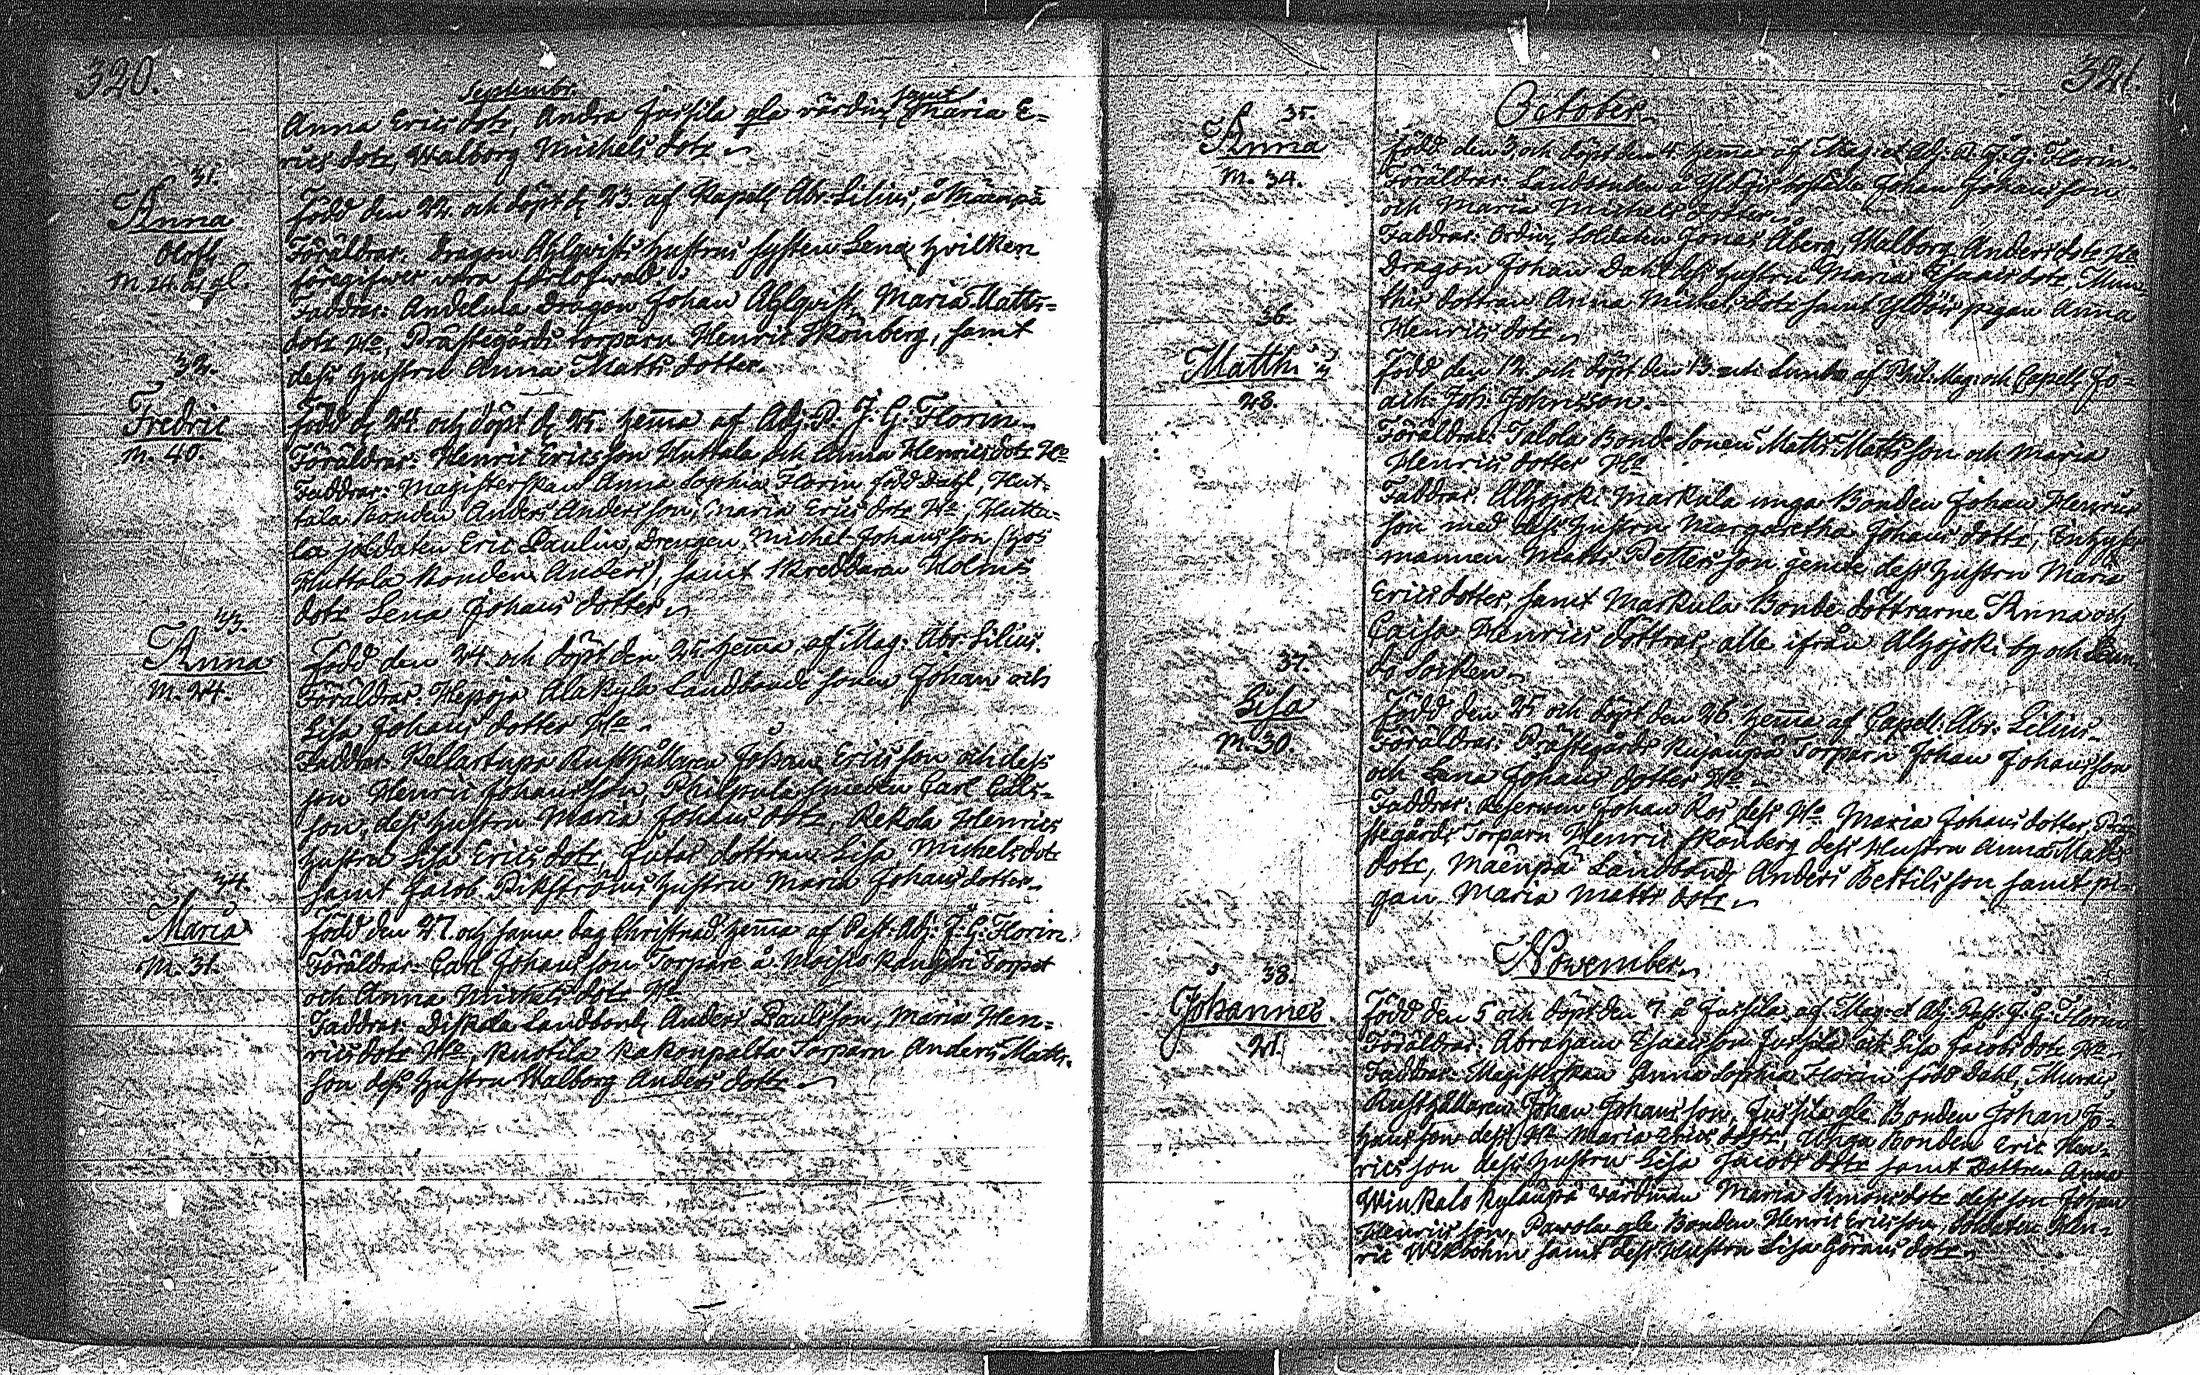 320.
Septembr.
Anna Erics dotr, Andra Jussila gla värdin, samt Maria E=
rics dotr, Walborg Michels dotr
31.
Anna
Oloff.
M. 24. år gl.
Född den 22. och döpt d. 23. af Kapell. Abr. Lilius, å Mäenpä
Föräldrar. Dragon Ahlqvists hustrus syster Lena, hvilken
föregifwes vara förlofwad.
Faddrar: Andelma dragon Johan Ahlqvist, Maria Matts=
dotr Ho, Prästegårds torparn Henric Skönberg, samt
dess hustru Anna Matts dotter.
32.
Fredric
M. 40.
Född d. 24. och döpt d. 25. hema af Adj. P. J. G. Florin
Föräldrar: Henric Ericsson Huttala och Anna Henricsdotr Ho
Faddrar: Magisterskan Anna Sophia Florin född Dahl, Hut=
tala Bonden Anders Andersson, Maria Erics dotr Ho, Hutta=
la soldaten Eric Paulin, Drengen Michel Johansson (hos
Huttala Bonden Anders), samt Skreddaren Holms
dotr Lena Johans dotter
33.
Anna
M. 24.
Född den 24. och döpt den 25. hema af Mag: Abr. Lilius.
Föräldrar: Hepoja Alakyla Landbonde sonen Johan och
Lisa Johans dotter Ho
Faddrar. Kellartupa Rusthållaren Johan Ericsson och dess
son Henric Johansson, Philpula smeden Carl Carls=
son, dess hustru Maria Johans dotr, Rekola Henrics
hustru Lisa Erics dotr, dottran Lisa Michelsdotr
samt Jacob Vikströms hustru Maria Johans dotter
34.
Maria
M. 31.
Född den 27. och sama dag Christnad hema af Past. Adj: J. G. Florin
Föräldrar: Carl Johansson Torpare å Moisio Kangari Torpet
och Anna Michels dotr Ho
Faddrar: Diskola Landbond. Anders Paulsson, Maria Hen=
ricsdotr Ho, Knotila Kakonpalta Torparn Anders Matts=
son dess hustru Walborg Anders dotr
321.
October
35.
Anna
M. 34.
Född den 3 och döpt den 4. hema af Mag. et Adj: P. J. G. Florin
Föräldrar: Landbonden å boställe Johan Johansson
och Maria Michels dotter
Faddrar: Soldaten Jonas Åberg, Walborg Andersdotr Ho
Dragon Johan Dahl dess hustru Maria Isaacsdotr,
dottran Anna Michels dotr samt pigan Anna
Henrics dotr
36.
Matths
28.
Född den 12. och döpt den 13. uti Lundo af Phil: Mag: och Capell. Jo=
ach. Joh. Johnsson.
Föräldrar: Talola Bonde sonen Matts Mattsson och Maria
Henrics dotter Ho
Faddrar. Alhojoki Markula unga Bonden Johan Henrics
son med dess hustru Margaretha Johans dotr, Inhyses
mannen Matts Pettersson dess hustru Maria
Ericsdotter, samt Markula Bonde döttrarne Anna och
Caisa Henrics döttrar, alle ifrån Alhojoki by och Lun=
do Socken
37.
Lisa
M. 30.
Född den 25 och döpt den 26. hema af Capel. Abr. Lilius
Föräldrar: Prästegårds Torparn Johan Johansson
och Lena Johans dotter Ho
Faddrar: Johan Ros dess Ho Maria Johans dotter, Prä=
stegårds Torparn Henric Skönberg dess Hustru Anna Matts
dotr, Mäenpä Landbond. Anders Bertilsson samt pi=
gan Maria Matts dotr
November
38.
Johannes.
21.
Född den 5 och döpt den 7. å Jussila af Mag: et Adj: Past. J. G. Florin
Föräldrar: Abraham Isacsson Jussila och Lisa Jacobs dotr Ho
Faddrar: Magisterskan Anna Sophia Florin född Dahl,
Rusthållaren Johan Johansson, Jussila gla Bonden Johan Jo=
hansson dess Ho Maria Erics dotr, Unga Bonden Eric Hen=
ricsson dess hustru Lisa Jacobs dotr samt Dottren Anna
Winkals Kylänpä värdinan Maria Simonsdotr dess son Johan
Henricsson, Pavola gla Bonden Henric Ericsson, Soldaten Hen=
ric samt dess Hustru Lisa Görans dotr